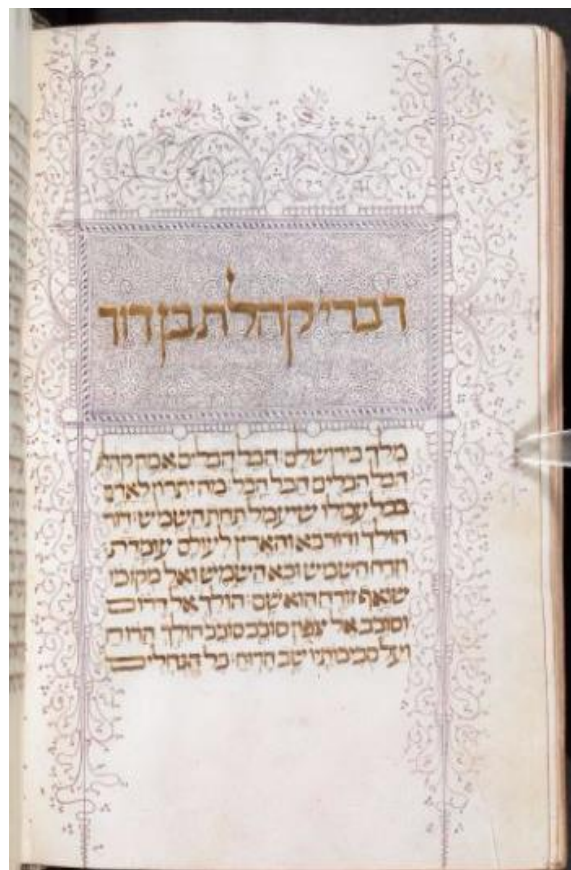 דברי קהלת בן דוד
מלך בירושלם הבל הבלים אמר קהלת
הבל הבלים הכל הבל מה יתרון לאדם
בכל עמלו שיעמל תחת השמש דור
הולך ודור בא והארץ לעולם עומדת
וזרח השמש ובא השמש ואל מקומו
שואף זורח הוא שם הולך אל דרום
וסובב אל צפון סובב סובב הולך הרוח
ועל סביבותיו שב הרוח כל הנחלים